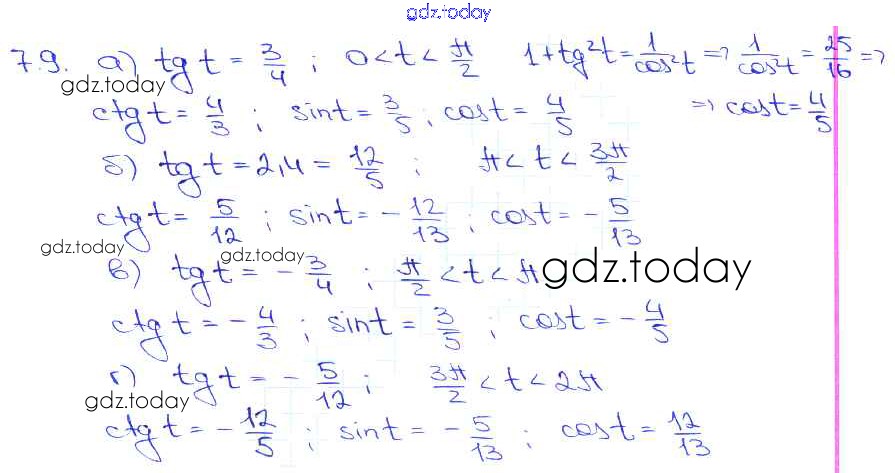 gdz.today
7.9. а) tg t = 3/4 ; 0 < t < π/2 1 + tg²t = 1/cos²t => 1/cos²t = 25/16 =>
gdz.today
ctg t = 4/3 ; sin t = 3/5 ; cos t = 4/5 => cos t = 4/5
б) tg t = 2,4 = 12/5 ; π < t < 3π/2
ctg t = 5/12 ; sin t = - 12/13 ; cos t = - 5/13
gdz.today gdz.today
в) tg t = - 3/4 ; π/2 < t < π gdz.today
ctg t = - 4/3 ; sin t = 3/5 ; cos t = - 4/5
г) tg t = - 5/12 ; 3π/2 < t < 2π
gdz.today
ctg t = - 12/5 ; sin t = - 5/13 ; cos t = 12/13